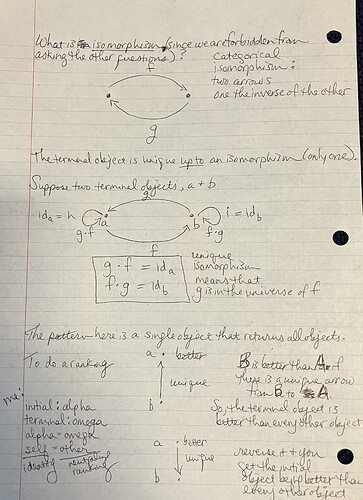 What is isomorphism (since we are forbidden from
asking the other questions)?
Categorical
isomorphism:
two arrows
one the inverse of the other
f
g
The terminal object is unique up to an isomorphism (only one).
Suppose two terminal objects, a + b
g
id_a = h
a
b
i = id_b
g·f
f·g
f
g·f = id_a
f·g = id_b
unique
isomorphism
means that
g is in the universe of f
The pattern here is a single object that returns all objects.
To do a ranking
a
better
unique
b
B is better than A if
there is a unique arrow
from B to A
So, the terminal object is
better than every other object
me:
initial: alpha
terminal: omega
alpha = omega
self = other
identity
ranking
a
better
unique
b
reverse it + you
get the initial
object being better than
every other object